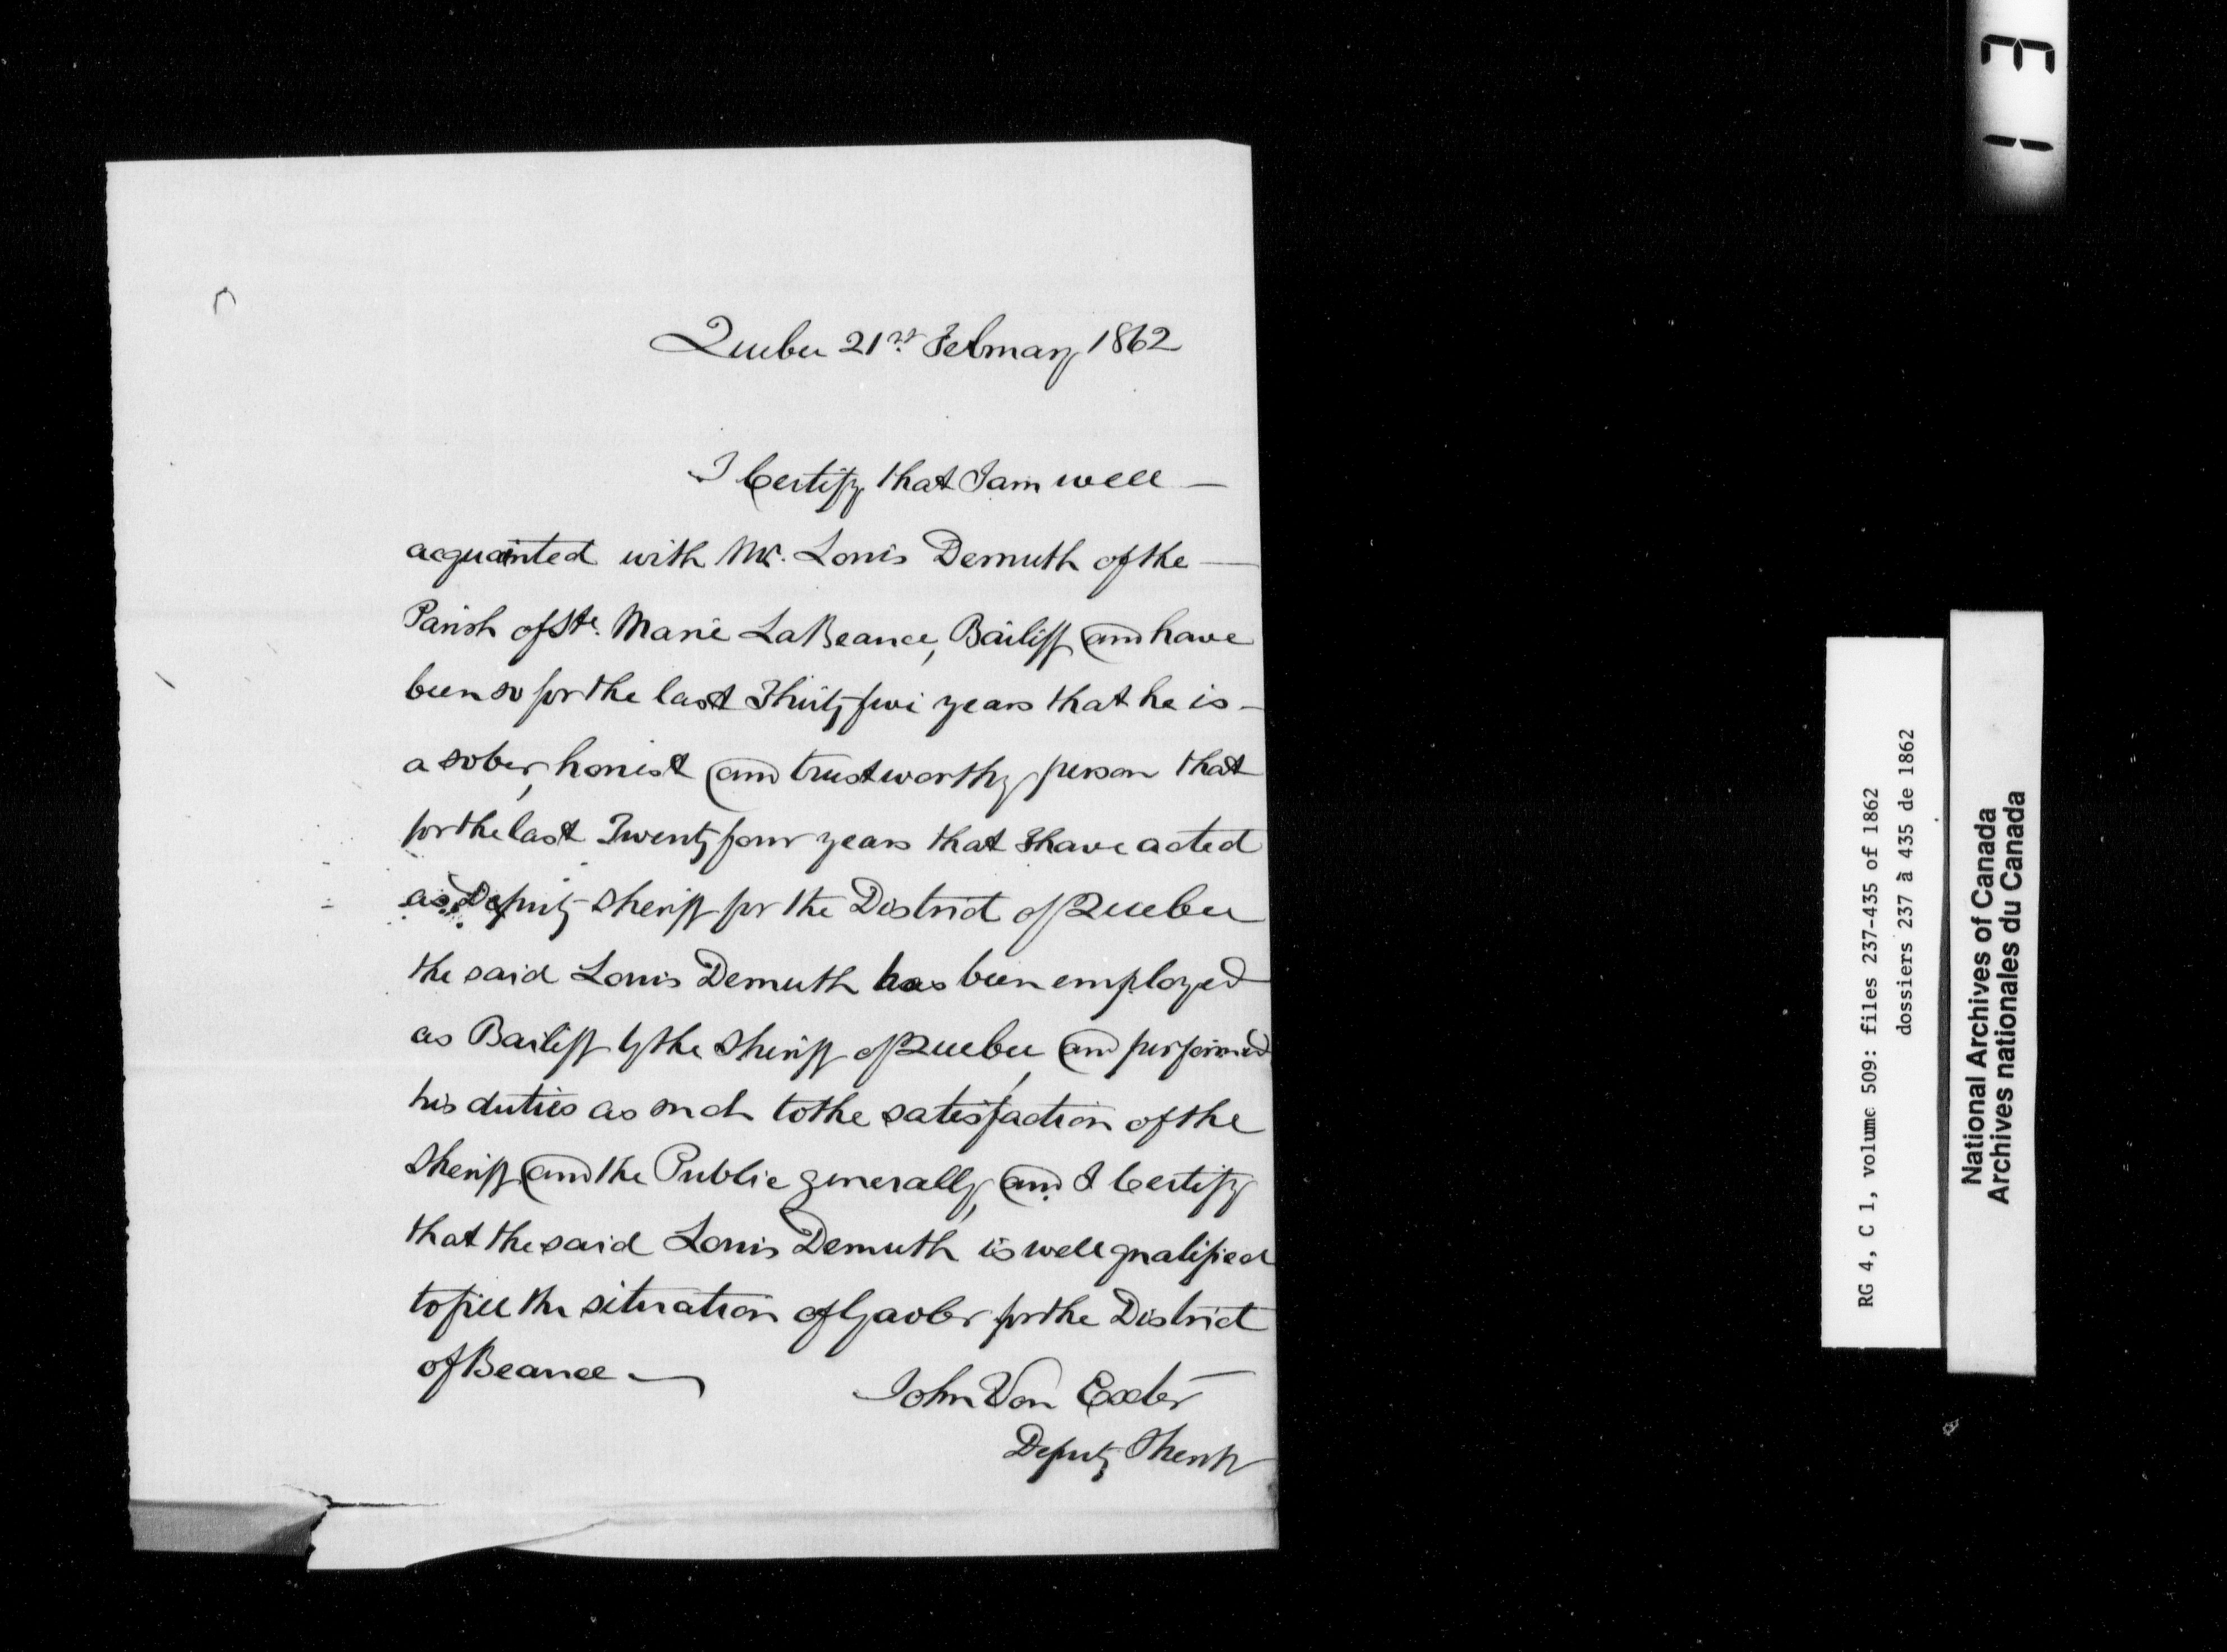 Quebec 21st February 1862
I Certify that I am well —
acquainted with Mr. Louis Demuth of the —
Parish of Ste. Marie La Beauce, Bailiff and have
been so for the last Thirty five years that he is —
a sober, honest and trustworthy person that
for the last Twenty four years that I have acted
as Deputy Sheriff for the District of Quebec
the said Louis Demuth has been employed
as Bailiff by the Sheriff of Quebec, and performed
his duties as such to the satisfaction of the
Sheriff and the Public generally, and I Certify
that the said Louis Demuth is well qualified
to fill the situation of Gaoler for the District
of Beauce —
John Von Exter
Deputy Sheriff
RG 4, C 1, volume 509: files 237-435 of 1862
dossiers 237 à 435 de 1862
National Archives of Canada
Archives nationales du Canada